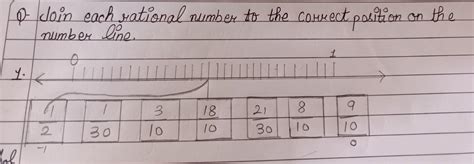 Q- Join each rational number to the correct position on the
number line.
0 1
1.
1 1 3 18 21 8 9
2 30 10 10 30 10 10
-1 0